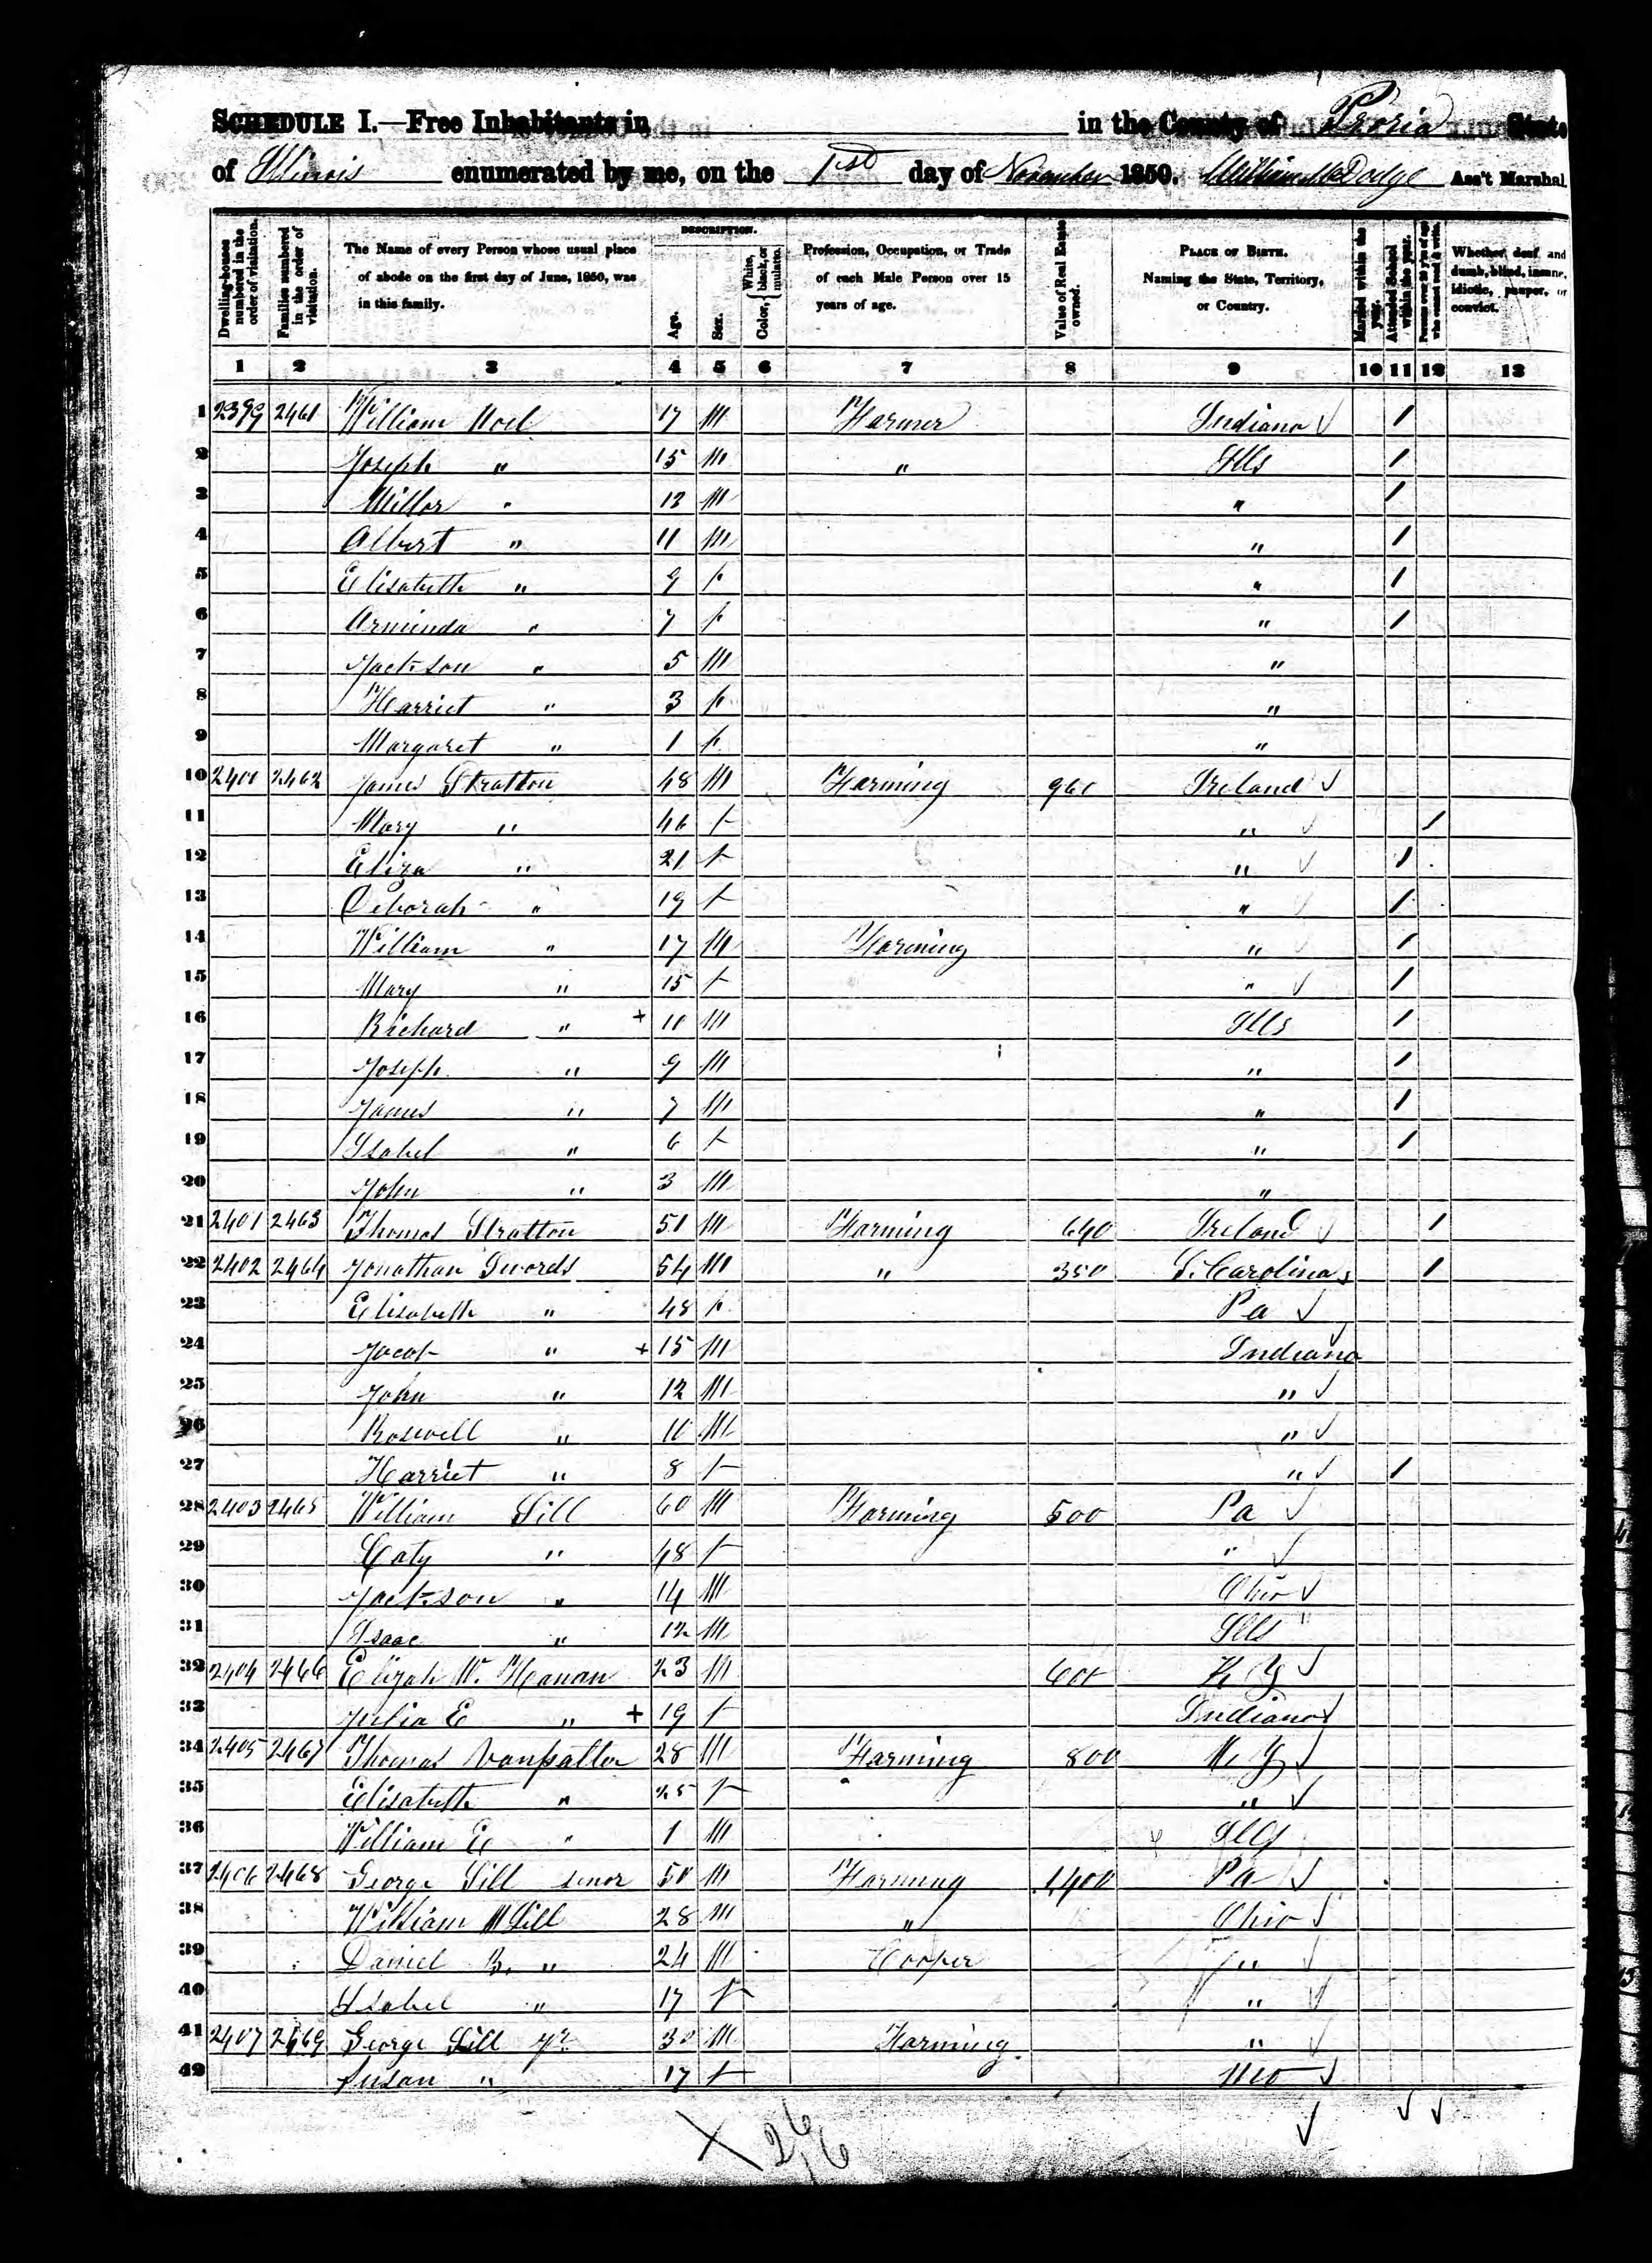 SCHEDULE I.—Free Inhabitants in in the County of Peoria State
of Illinois enumerated by me, on the 1st day of November 1850. Ass't Marshal
Dwelling-houses numbered in the order of visitation.
Families numbered in the order of visitation.
The Name of every Person whose usual place of abode on the first day of June, 1850, was in this family.
DESCRIPTION.
Age.
Sex.
Color, { White, black, or mulatto.
Profession, Occupation, or Trade of each Male Person over 15 years of age.
Value of Real Estate owned.
PLACE OF BIRTH. Naming the State, Territory, or Country.
Married within the year.
Attended School within the year.
Persons over 20 y'rs of age who cannot read & write.
Whether deaf and dumb, blind, insane, idiotic, pauper, or convict.
1 2 3 4 5 6 7 8 9 10 11 12 13
1 2399 2461 William 17 M Farmer Indiana 1
2 Joseph " 15 M " Ills 1
3 " M " 1
4 Albert " 11 M " 1
5 Elisabeth " 9 f " 1
6 Arminda " 7 f " 1
7 Jackson " 5 M "
8 Harriet " 3 f "
9 Margaret " 1 f "
10 2400 2462 James Stratton 48 M Farming 960 Ireland
11 Mary " 46 f " 1
12 Eliza " 21 f " 1
13 Deborah " 19 f " 1
14 William " 17 M Farming " 1
15 Mary " 15 f " 1
16 Richard " + M Ills 1
17 Joseph " 9 M " 1
18 James " 7 M " 1
19 Isabel " 6 f " 1
20 John " 3 M "
21 2401 2463 Thomas Stratton 51 M Farming 640 Ireland 1
22 2402 2464 Jonathan Swords 54 M " 350 S. Carolina 1
23 Elisabeth " 48 f Pa
24 Jacob " + 15 M Indiana
25 John " 12 M "
26 Roswell " 10 M "
27 Harriet " 8 f " 1
28 2403 2465 William 60 M Farming 500 Pa
29 Caty " 48 f "
30 Jackson " 14 M Ohio
31 Isaac " 12 M Ills
32 2404 2466 Elijah W. 23 M 600 K Y
33 Julia E " + 19 f Indiana
34 2405 2467 Thomas 28 M Farming 800 N. Y
35 Elisabeth " 25 f "
36 William E " 1 M Ills
37 2406 2468 George senor 50 M Farming 1,400 Pa
38 William 28 M " Ohio
39 Daniel B. " 24 M Cooper "
40 Isabel " 17 f "
41 2407 2469 George Jr 30 M Farming "
42 Susan " 17 f